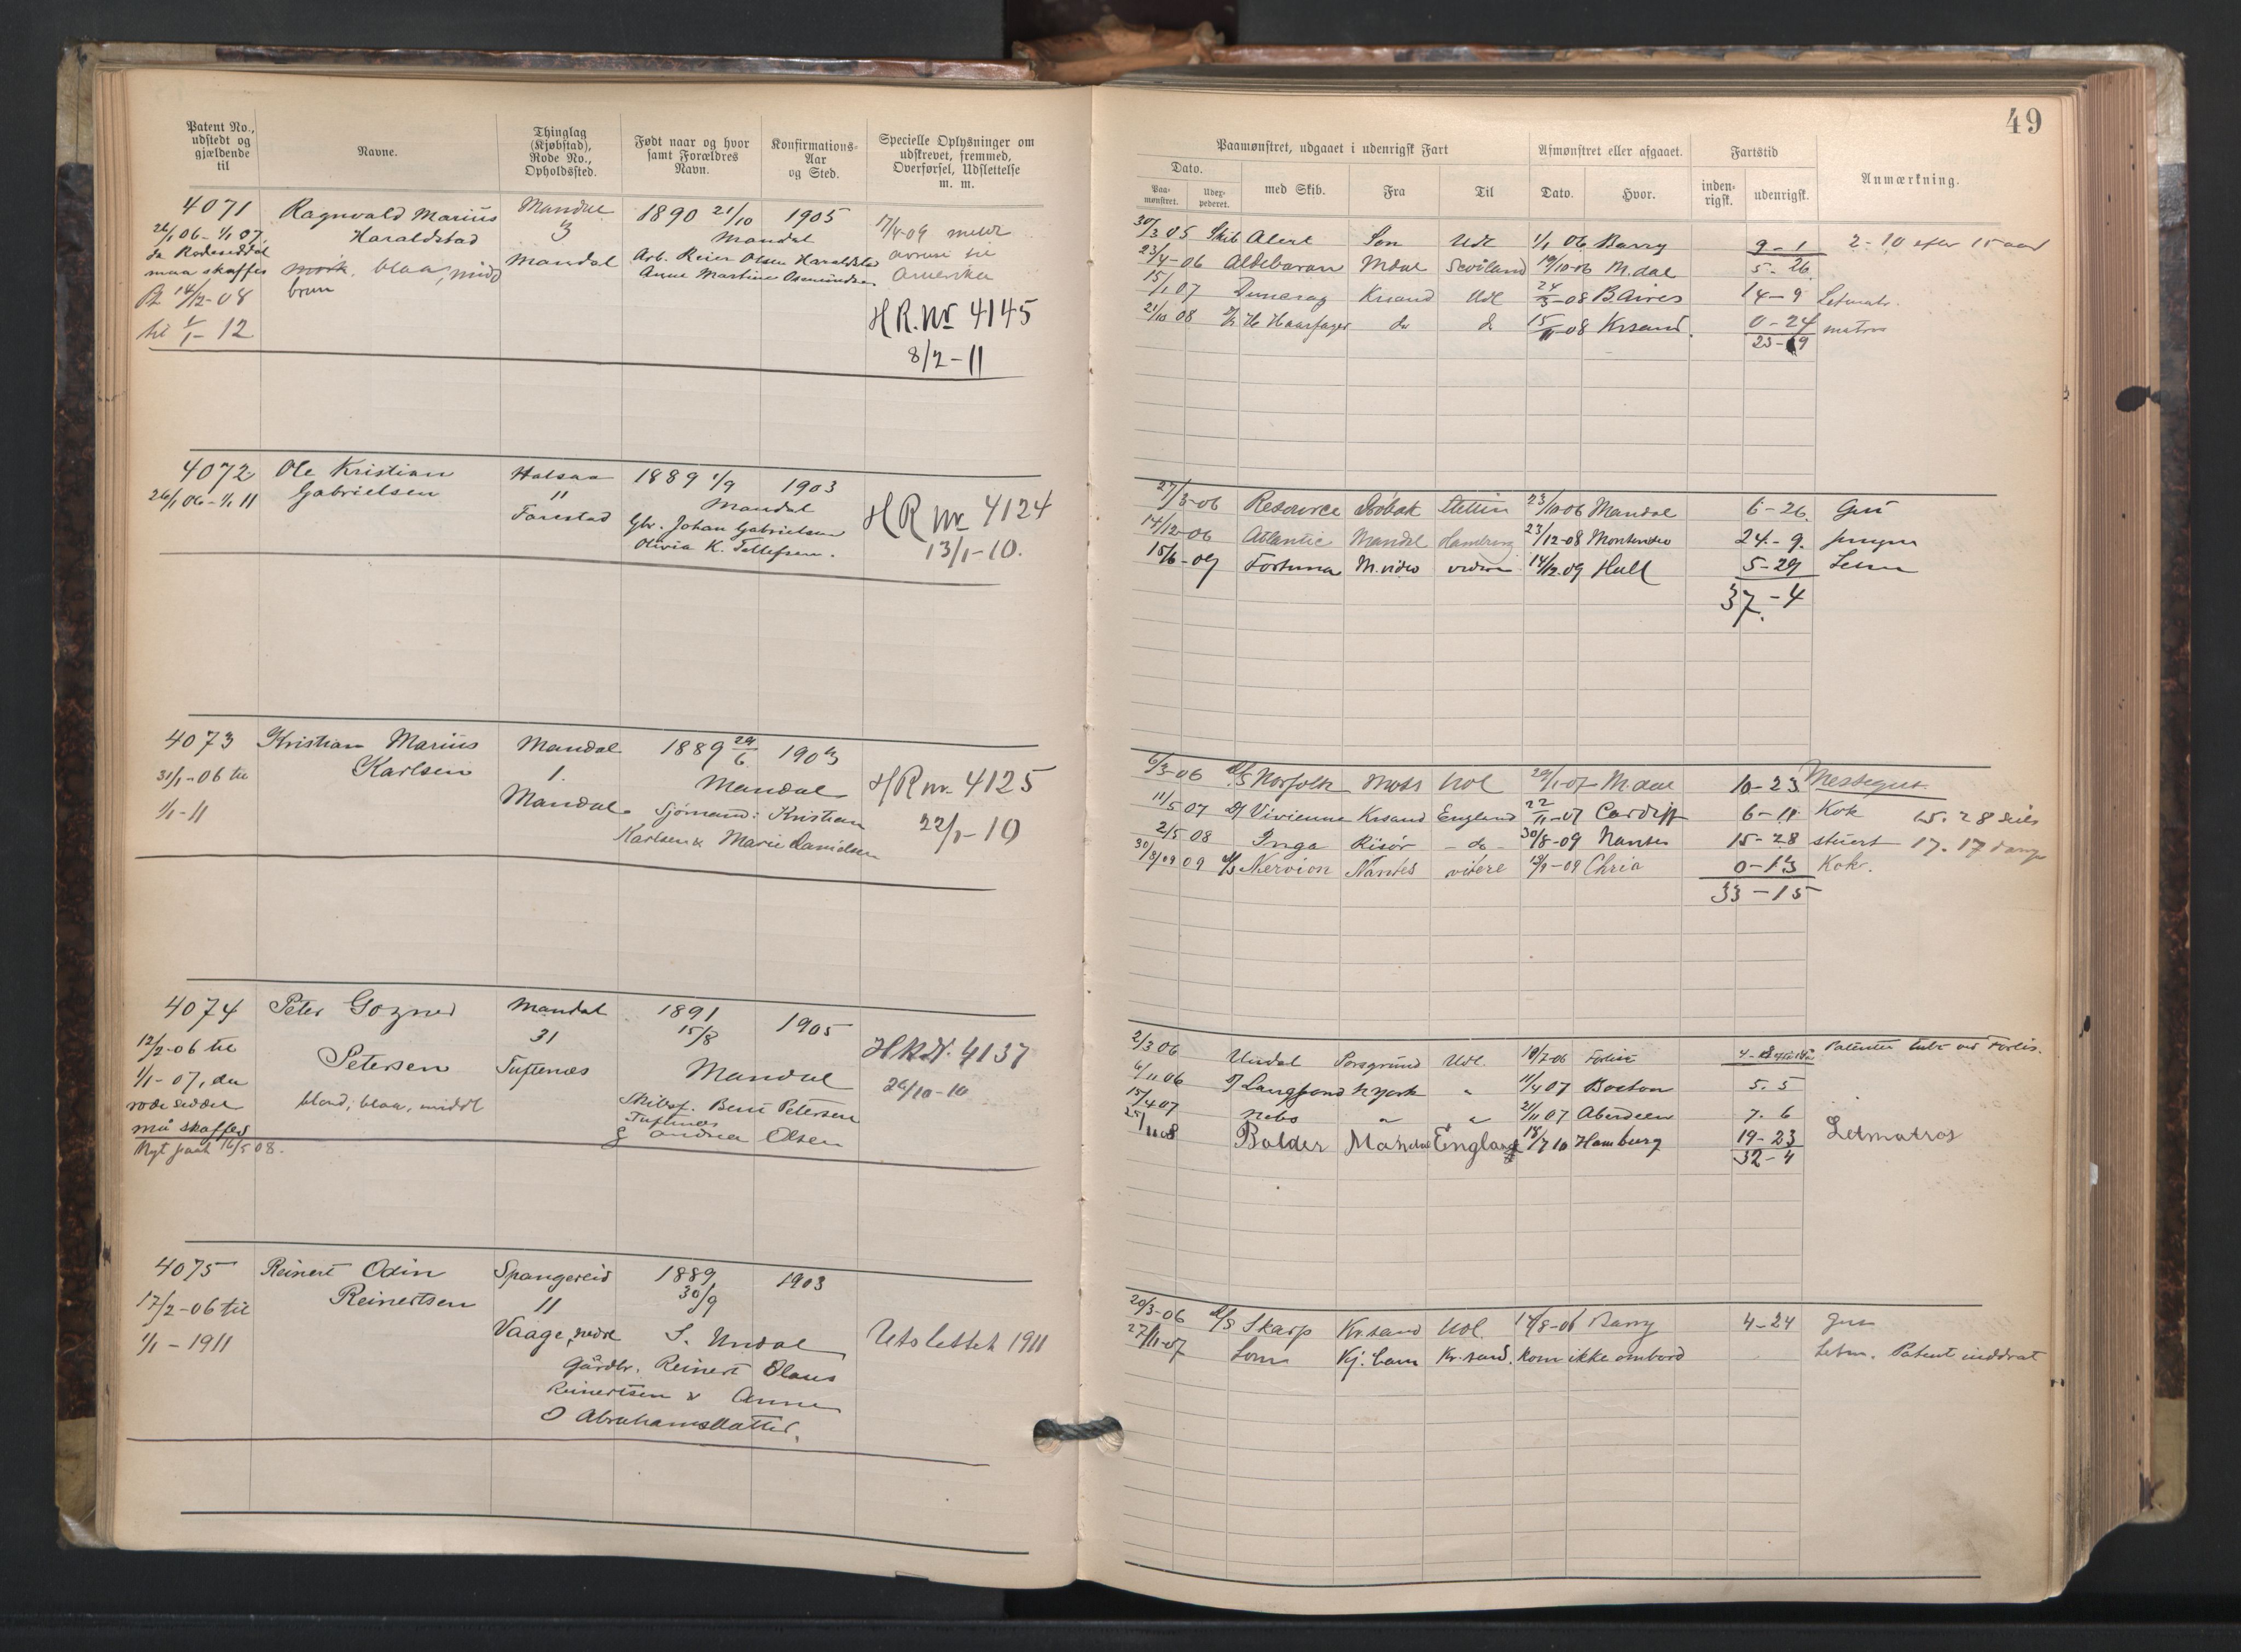 49
Patent No., udstedt og gjældende til
Navne.
Thinglag (Kjøbstad), Rode No., Opholdssted.
Født naar og hvor samt Forældres Navn.
Konfirmations-Aar og Sted.
Specielle Oplysninger om udskrevet, fremmed, Overførsel, Udslettelse m. m.
Paamønstret, udgaaet i udenrigsk Fart
Afmønstret eller afgaaet.
Fartstid
Anmærkning.
Dato.
Paa-mønstret.
Uder-
med Skib.
Fra
Til
Dato.
Hvor.
inden-rigsk.
udenrigsk.
4071 Ragnvald Marius Mandal 1890 21/10 1905 17/4-09 meldt
26/1 06 - 1/1 07, Haraldstad 3 Mandal
da Rodeseddel Mandal Arb. Reier Olsen Haraldstad
maa skaffes mørk, blaa, midd Anne Martine Osmundsen Amerika
14/2-08 brun
til 1/1-12
HR. Nr 4145
8/2-11
30/3 05 Skib Alert Son Udl 1/1 06 Barry 9-1 2-10 efter 15 aar
23/4-06 Aldebaran Mdal 19/10-06 M.dal 5-26
15/1 07 Krsand Udl 24/3-08 B. Aires 14-9 Letmatr.
21/10 08 H. Haarfager do d 15/11-08 Krsand. 0-24 matros
4072 Ole Kristian Halsaa 1889 1/9 1903
26/1 06 - 1/1 11 Gabrielsen 11 Mandal
Farestad Gbr. Johan Gabrielsen
Olivia K. Tellefsen.
HR Nr 4124
13/1-10.
27/3-06 Resource Drøbak Stettin 23/10-06 Mandal 6-26. Gut
14/12-06 Atlantic Mandal Hamburg 23/12-08 Montevideo 24-9. jungm
15/6-09 Fortuna M.video videre 14/12-09 Hull 5-29 Letm
37-4
4073 Kristian Marius Mandal 1889 29/6 1903
31/1-06 til Karlsen 1. Mandal
1/1-11 Mandal. Sjømand: Kristian
Karlsen & Marie Danielsen
HR nr. 4125
22/1-10
6/3-06 D/S Norfolk Moss Udl 29/1-07 M.dal 10-23 Messegut.
11/5 07 Vivienne Krsand England 22/11-07 Cardiff 6-11 Kok 15.28 seils
2/5 08 Inga Risør -do- 30/8-09 Nantes 15-28 stuert 17.17 damp
30/8 09 D/S Nervion Nantes videre 13/9-09 Chria 0-13 Kok.
33-15
4074 Peter Gozner Mandal 1891 1905
12/2-06 til Petersen 31 15/8
1/1-07, da Tuftenæs Mandal
rode seddel blond, blaa, middl Skibsf. Bent Petersen
må skaffes Tuftenæs
Nyt 16/5 08. & Andrea Olsen
4137
26/10-10
2/3 06 Undal Porsgrund Udl. 19/7-06 Forlist
6/11 06 N York " 11/4 07 Boston 5.5
15/4 07 Nebo " " 21/11 07 Aberdeen 7.6
25/1 08 Balder Mandal England 18/7 10 Hamburg 19-23 Letmatros
32-4
4075 Reinert Odin Spangereid 1889 1903
17/2-06 til Reinertsen 11 30/9
1/1-1911 Vaage, nedre S. Undal Utslettet 1911
Gårdbr. Reinert Olaus
Reinertsen & Anne
O Abrahamsdatter.
20/3-06 D/S Skarp Kr.sand Udl. 14/8-06 Barry 4-24 Gut
27/11-07 Lom Kj. havn Kr. sand. Kom ikke ombord Letm. Patent inddrat